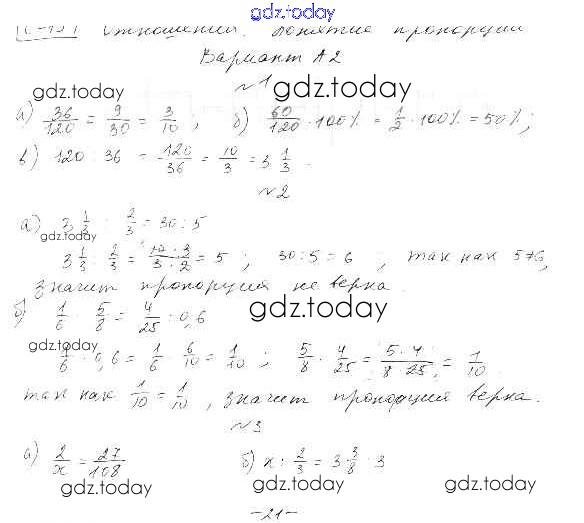 gdz.today
Отношения. Понятие пропорции
Вариант А2
№1
gdz.today gdz.today
а) 36/120 = 9/30 = 3/10 ; б) 60/120 · 100% = 1/2 · 100% = 50% ;
в) 120 : 36 = 120/36 = 10/3 = 3 1/3
№2
а) 3 1/3 : 2/3 = 30 : 5
gdz.today gdz.today
3 1/3 : 2/3 = 10 · 3/3 · 2 = 5 ; 30 : 5 = 6 , так как 5≠6,
значит пропорция не верна.
б) 1/6 : 5/8 = 4/25 : 0,6
gdz.today
gdz.today
1/6 · 0,6 = 1/6 · 6/10 = 1/10 ; 5/8 · 4/25 = 5 · 4/8 · 25 = 1/10
так как 1/10 = 1/10 , значит пропорция верна.
№3
а) 2/x = 27/108 б) x : 2/3 = 3 3/8 : 3
gdz.today gdz.today gdz.today
-21-